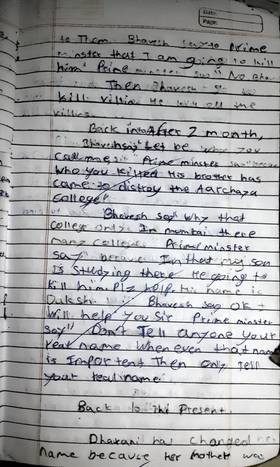 DATE:
PAGE:
to Them Bhavesh say to Prime
minster that I am going to kill
him" Prime minster say" No
Then Bhavesh
kill villin He kill all the
villies.
Back in After 2 month,
Bhavesh say" Let be why you
Call me" Prime minster say" because
who you killed His brother has
came to distroy the Aarchaya
College"
Bhavesh say" why that
college only. In mumbai there
many college Prime minster
say" because In that my son
Is studying there He going to
kill him plz help. His name is
Daksh" Bhavesh say ok I
Will help you Sir Prime minster
say" Don't Tell anyone your
real name When even that name
is Importent Then only tell
your real name.
Back to the Present.
Dharani has changed
name because her mother was